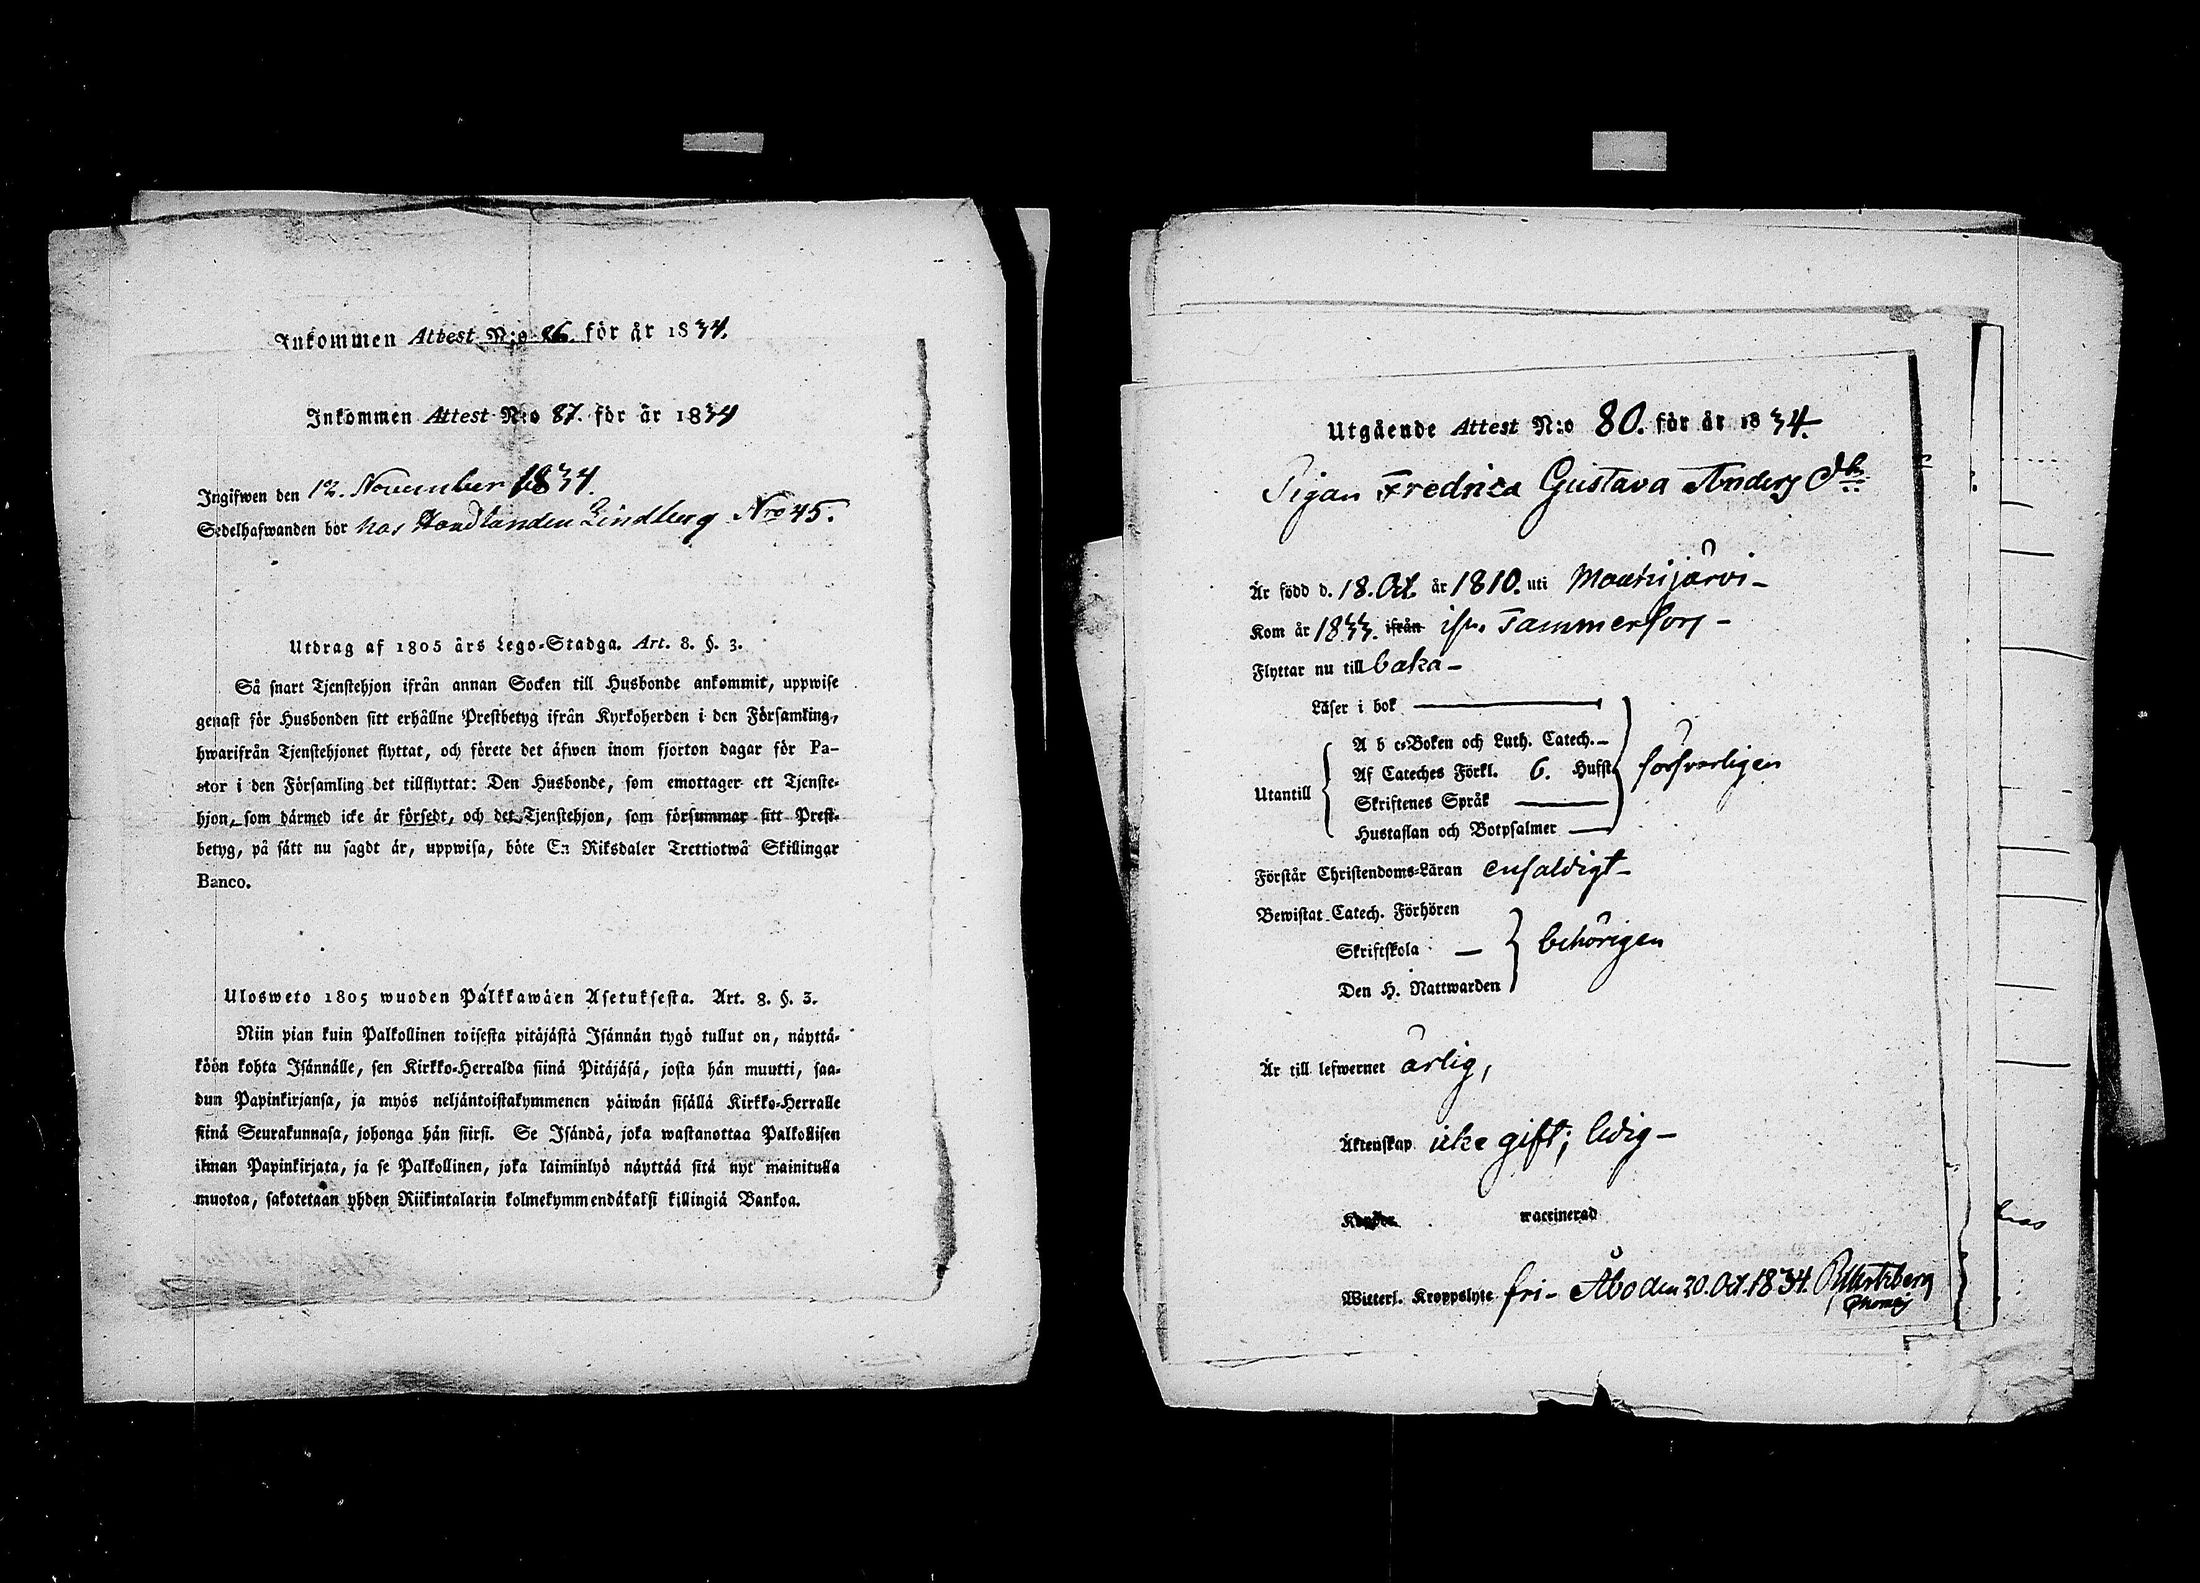 Inkommen Attest N:o 86. för år 1834.
Inkommen Attest N:o 87. för år 1834
Ingifwen den 12. November 1834.
Sedelhafwanden bor hos Handlanden Lindberg Nro 45.
Utdrag af 1805 års Lego-Stadga. Art. 8. §. 3.
Så snart Tjenstehjon ifrån annan Socken till Husbonde ankommit, uppwise
genast för Husbonden sitt erhållne Prestbetyg ifrån Kyrkoherden i den Församling,
hwarifrån Tjenstehjonet flyttat, och förete det äfwen inom fjorton dagar för Pa-
stor i den Församling det tillflyttat: Den Husbonde, som emottager ett Tjenste-
hjon, som därmed icke är försedt, och det Tjenstehjon, som försummar sitt Prest-
betyg, på sätt nu sagdt är, uppwisa, böte En Riksdaler Trettiotwå Skillingar
Banco.
Ulosweto 1805 wuoden Pálkkawäen Asetuksesta. Art. 8. §. 3.
Niin pian kuin Palkollinen toisesta pitäjästä Isännän tygö tullut on, näyttä-
köön kohta Isännälle, sen Kirkko-Herralda siinä Pitäjäsä, josta hän muutti, saa-
dun Papinkirjansa, ja myös neljäntoistakymmenen päiwän sisällä Kirkko-Herralle
siinä Seurakunnasa, johonga hän siirsi. Se Isändä, joka wastanottaa Palkollisen
ilman Papinkirjata, ja se Palkollinen, joka laiminlyö näyttää sitä nyt mainitulla
muotoa, sakotetaan yhden Riikintalarin kolmekymmendäkaksi killingiä Bankoa.
Utgående Attest N:o 80. för år 1834.
Pigan Fredrica Gustava Anders Dr
Är född d. 18. Oct. år 1810. uti Mouhijärvi-
Kom år 1833. ifrån ifr. Tammerfors-
Flyttar nu till baka-
Läser i bok
A b c-Boken och Luth. Catech.
Af Cateches Förkl. 6. Hufst.
försvarligen
Utantill
Skriftenes Språk
Hustaflan och Botpsalmer
Förstår Christendoms-Läran enfaldigt-
Bewistat Catech. Förhören
Skriftskola behörigen
Den H. Nattwarden
Är till lefwernet ärlig,
Äktenskap icke gift; ledig-
waccinerad
Witterl. Kroppslyte fri- Åbo den 20. Oct. 1834.